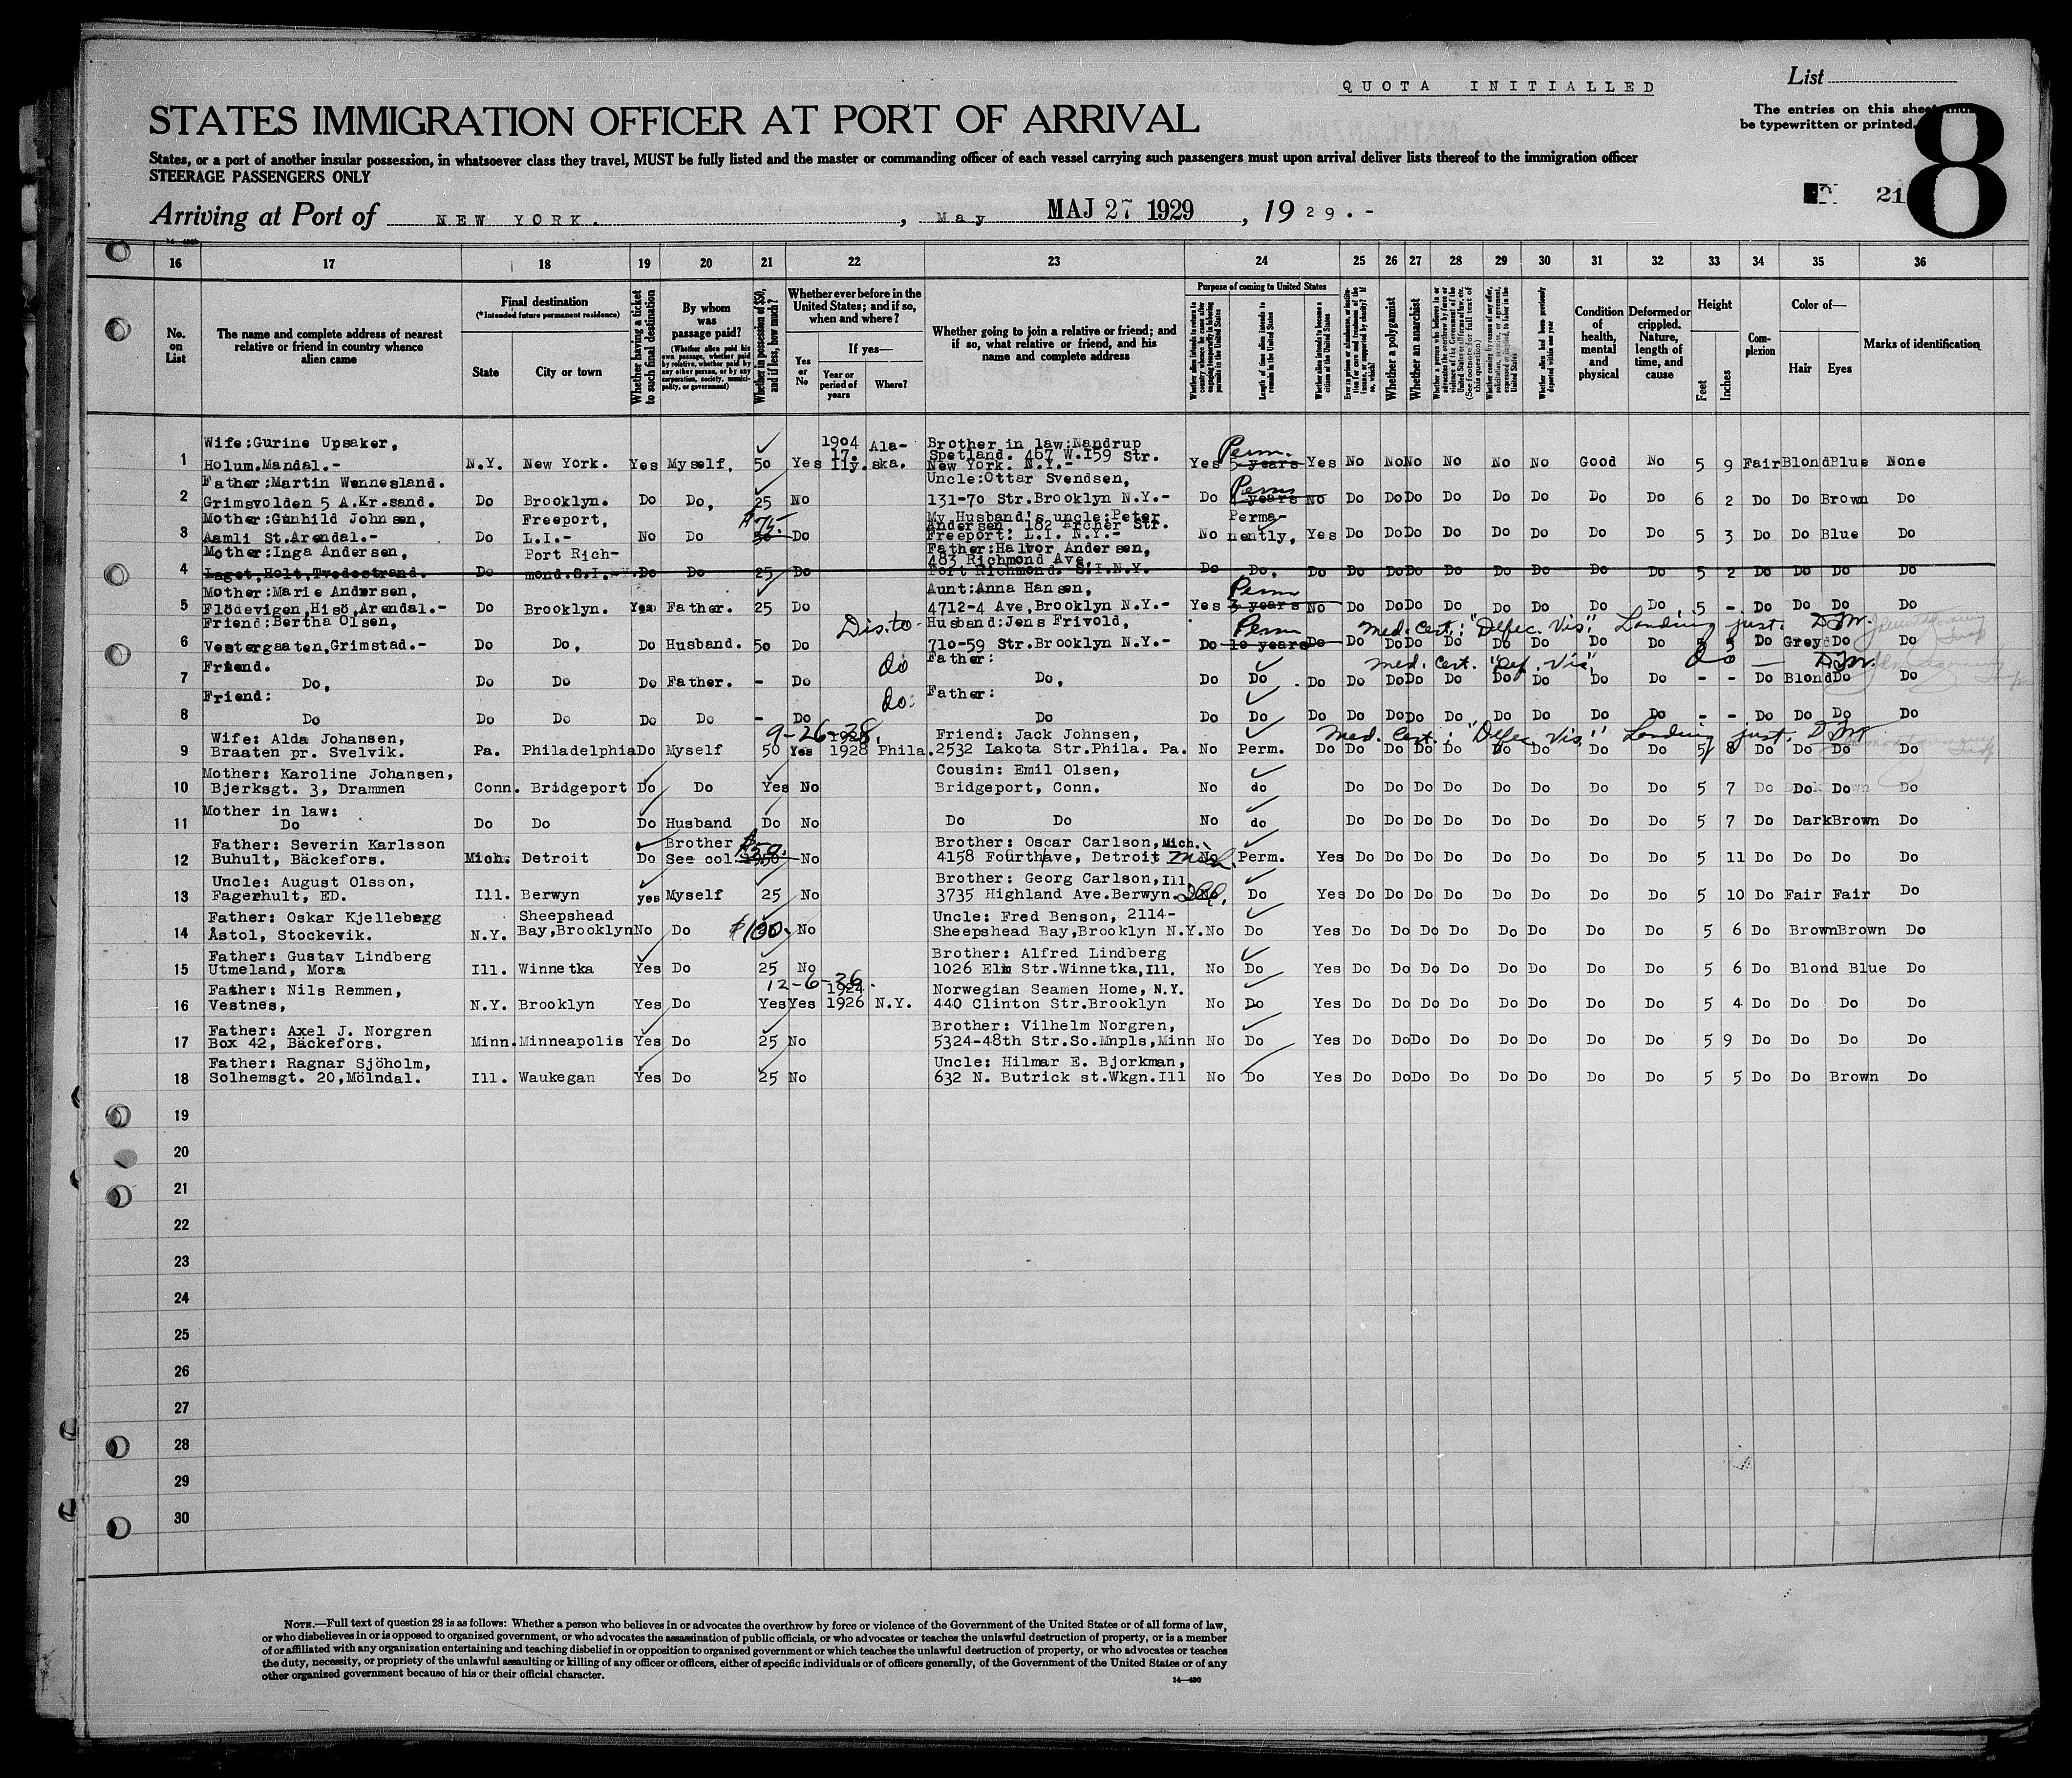 QUOTA INITIALLED
List
The entries on this sheet must
be typewritten or printed.
8
STATES IMMIGRATION OFFICER AT PORT OF ARRIVAL
States, or a port of another insular possession, in whatsoever class they travel, MUST be fully listed and the master or commanding officer of each vessel carrying such passengers must upon arrival deliver lists thereof to the immigration officer
STEERAGE PASSENGERS ONLY
21
Arriving at Port of NEW YORK. , May MAJ 27 1929 , 1929.-
16 17 18 19 20 21 22 23 24 25 26 27 28 29 30 31 32 33 34 35 36
No. on List
The name and complete address of nearest relative or friend in country whence alien came
Final destination
(*Intended future permanent residence)
State
City or town
Whether having a ticket to such final destination
By whom was passage paid?
(Whether alien paid his own passage, whether paid by relative, whether paid by any other person, or by any corporation, society, municipality, or government)
Whether in possession of $50, and if less, how much?
Whether ever before in the United States; and if so, when and where?
Yes or No
If yes—
Year or period of years
Where?
Whether going to join a relative or friend; and if so, what relative or friend, and his name and complete address
Purpose of coming to United States
Length of time alien intends to remain in the United States
Whether alien intends to become a citizen of the United States
Whether a polygamist
Whether an anarchist
Condition of health, mental and physical
Deformed or crippled. Nature, length of time, and cause
Height
Feet
Inches
Complexion
Color of—
Hair
Eyes
Marks of identification
1 Wife:Gurine Upsaker, Holum.Mandal.- N.Y. New York. Yes Myself, 50 Yes 1904 17. 11y. Ala-ska. Brother in law:Nandrup Spetland. 467 W.159 Str. New York. N.Y.- Yes Perm. 5 years Yes No No No No No No Good No 5 9 Fair Blond Blue None
2 Father:Martin Wennesland. Grimsvolden 5 A.Kr.sand. Do Brooklyn. Do Do, 25 No Uncle:Ottar Svendsen, 131-70 Str.Brooklyn N.Y.- Do Perm years No Do Do Do Do Do Do Do Do 6 2 Do Do Brown Do
3 Mother:Gunhild Johnsen, Aamli St.Arendal.- Do Freeport, L.I.- No Do $75. 50 Do My Husband's uncle:Peter Andersen, 182 Archer Str. Freeport: L.I. N.Y.- No Perma-nently, Yes Do Do Do Do Do Do Do Do 5 3 Do Do Blue Do
4 Mother:Inga Andersen, Laget,Holt,Tvedestrand. Do Port Rich-mond.S.I. Do Do 25 Do Father:Halvor Andersen, 483 Richmond Ave, Port Richmond. S.I.N.Y. Do Do. Do Do Do Do Do Do Do Do Do 5 2 Do Do Do Do
5 Mother:Marie Andersen, Flödevigen,Hisö,Arendal.- Do Brooklyn. Yes Father. 25 Do Aunt:Anna Hansen, 4712-4 Ave,Brooklyn N.Y.- Yes Perm 3 years No Do Do Do Do Do Do Do Do 5 - Do Do Do Do
6 Friend:Bertha Olsen, Vestergaaten,Grimstad.- Do Do, Do Husband. 50 Do Dis.to Husband:Jens Frivold, 710-59 Str.Brooklyn N.Y.- Do Perm 10 years Do Med. Cert.: "Defec. Vis." Landing just. Do Do Do Do Do Do Do Do 5 5 Do Grey Do Do
7 Friend. Do, Do Do Do Father. - Do do Father: Do, Do Do . Do Med. Cert. "Def. Vis." Do — Do Do Do Do Do Do Do Do - - Do Blond Do Do
8 Friend: Do Do Do Do Do - Do do: Father: Do Do Do Do Do Do Do Do Do Do Do Do - - Do Do Do Do
9 Wife: Alda Johansen, Braaten pr. Svelvik. Pa. Philadelphia Do Myself 50 Yes 9-26-28, 1928 Phila. Friend: Jack Johnsen, 2532 Lakota Str.Phila. Pa. No Perm. Do Med. Cert.: "Defec. Vis." Landing just. Do Do Do Do Do Do Do Do 5 8 Do Do Do Do
10 Mother: Karoline Johansen, Bjerksgt. 3, Drammen Conn. Bridgeport Do Do Yes No Cousin: Emil Olsen, Bridgeport, Conn. No do Do Do Do Do Do Do Do Do 5 7 Do Do Do Do
11 Mother in law: Do Do Do Do Husband Do No Do Do No do Do Do Do Do Do Do Do Do 5 7 Do Dark Brown Do
12 Father: Severin Karlsson Buhult, Bäckefors. Mich. Detroit Do Brother See col. $50. No Brother: Oscar Carlson, Mich. 4158 Fourthave, Detroit Mich. No Perm. Yes Do Do Do Do Do Do Do Do 5 11 Do Do Do Do
13 Uncle: August Olsson, Fagerhult, ED. Ill. Berwyn yes Myself 25 No Brother: Georg Carlson, Ill 3735 Highland Ave.Berwyn. No Do Yes Do Do Do Do Do Do Do Do 5 10 Do Fair Fair Do
14 Father: Oskar Kjelleberg Åstol, Stockevik. N.Y. Sheepshead Bay,Brooklyn No Do $100. No Uncle: Fred Benson, 2114- Sheepshead Bay,Brooklyn N.Y. No Do Yes Do Do Do Do Do Do Do Do 5 6 Do Brown Brown Do
15 Father: Gustav Lindberg Utmeland, Mora Ill. Winnetka Yes Do 25 No Brother: Alfred Lindberg 1026 Elm Str.Winnetka,Ill. No Do Yes Do Do Do Do Do Do Do Do 5 6 Do Blond Blue Do
16 Father: Nils Remmen, Vestnes, N.Y. Brooklyn Yes Do Yes Yes 12-6-26. 1924 1926 N.Y. Norwegian Seamen Home, N.Y. 440 Clinton Str.Brooklyn No Do Yes Do Do Do Do Do Do Do Do 5 4 Do Do Do Do
17 Father: Axel J. Norgren Box 42, Bäckefors. Minn. Minneapolis Yes Do 25 No Brother: Vilhelm Norgren, 5324-48th Str.So.Mnpls,Minn No Do Yes Do Do Do Do Do Do Do Do 5 9 Do Do Do Do
18 Father: Ragnar Sjöholm, Solhemsgt. 20,Mölndal. Ill. Waukegan Yes Do 25 No Uncle: Hilmar E. Bjorkman, 632 N. Butrick st.Wkgn.Ill No Do Yes Do Do Do Do Do Do Do Do 5 5 Do Do Brown Do
19
20
21
22
23
24
25
26
27
28
29
30
NOTE.—Full text of question 28 is as follows: Whether a person who believes in or advocates the overthrow by force or violence of the Government of the United States or of all forms of law,
or who disbelieves in or is opposed to organized government, or who advocates the assassination of public officials, or who advocates or teaches the unlawful destruction of property, or is a member
of or affiliated with any organization entertaining and teaching disbelief in or opposition to organized government or which teaches the unlawful destruction of property, or who advocates or teaches
the duty, necessity, or propriety of the unlawful assaulting or killing of any officer or officers, either of specific individuals or of officers generally, of the Government of the United States or of any
other organized government because of his or their official character.
14—430